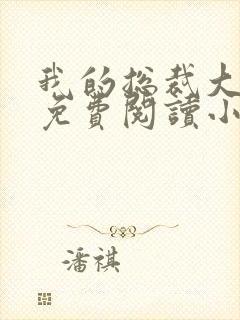 我的总裁大
免費閱讀小
潘祺